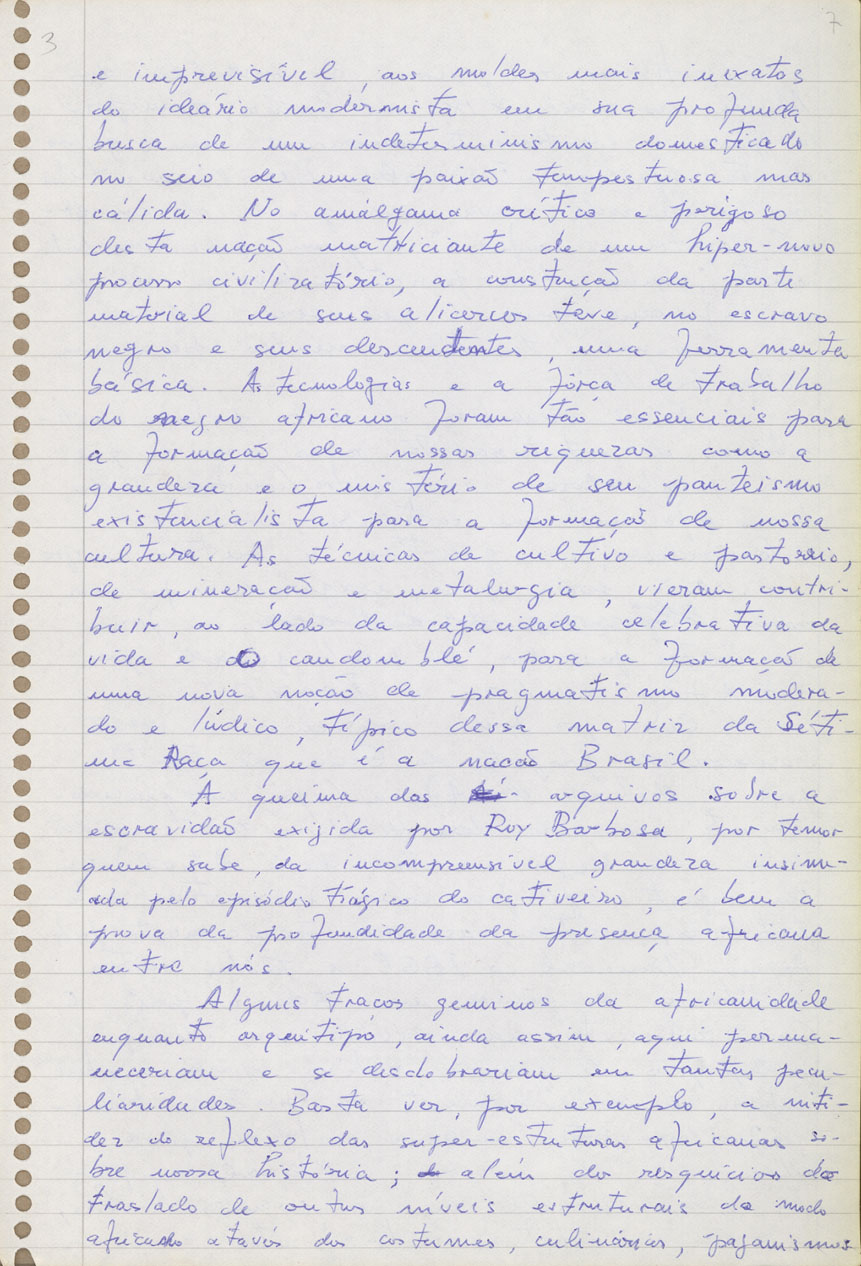 3 7
e imprevisível, aos moldes mais inexatos
do ideário modernista em sua profunda
busca de um indeterminismo domesticado
no seio de uma paixão tempestuosa mas
cálida. No amálgama crítico e perigoso
desta nação matriciante de um hiper-novo
processo civilizatório, a construção da parte
material de seus alicerces teve, no escravo
negro e seus descendentes, uma ferramenta
básica. As tecnologias e a força de trabalho
do negro africano foram tão essenciais para
a formação de nossas riquezas como a
grandeza e o mistério de seu panteismo
existencialista para a formação de nossa
cultura. As técnicas de cultivo e pastoreio,
de mineração e metalurgia, vieram contri-
buir, ao lado da capacidade celebrativa da
vida e do candomblé, para a formação de
uma nova noção de pragmatismo modera-
do e lúdico, típico dessa matriz da Séti-
ma Raça que é a nação Brasil.
A queima dos arquivos sobre a
escravidão exigida por Ruy Barbosa, por temor
quem sabe, da incompreensível grandeza insinu-
ada pelo episódio trágico do cativeiro, é bem a
prova da profundidade da presença africana
entre nós.
Alguns traços genuinos da africanidade
enquanto arquétipo, ainda assim, aqui perma-
neceriam e se desdobrariam em tantas pecu-
liaridades. Basta ver, por exemplo, a niti-
dez do reflexo das super-estruturas africanas so-
bre nossa história; além do resquício do
traslado de outros níveis estruturais do modo
africano através dos costumes, culinárias, paganismos